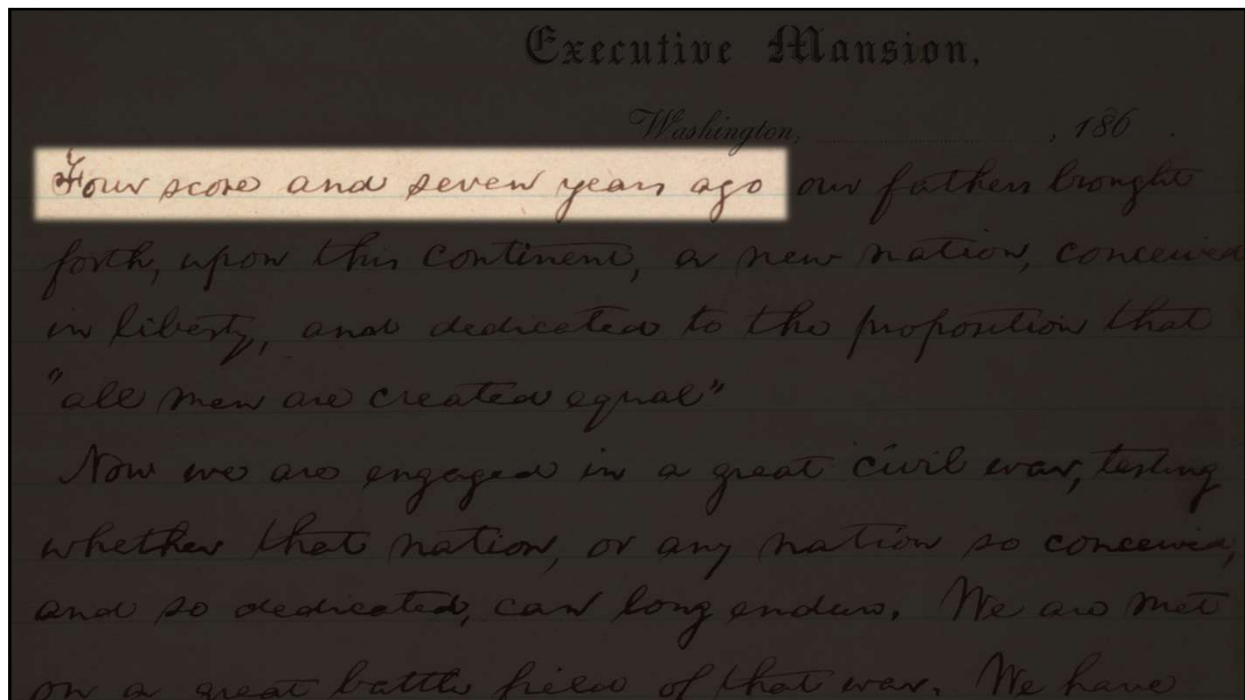 Executive Mansion,
Washington, , 186 .
Four score and seven years ago our fathers brought
forth, upon this continent, a new nation, conceived
in liberty, and dedicated to the proposition that
"all men are created equal"
Now we are engaged in a great civil war, testing
whether that nation, or any nation so conceived,
and so dedicated, can long endure. We are met
on a great battle field of that war. We have